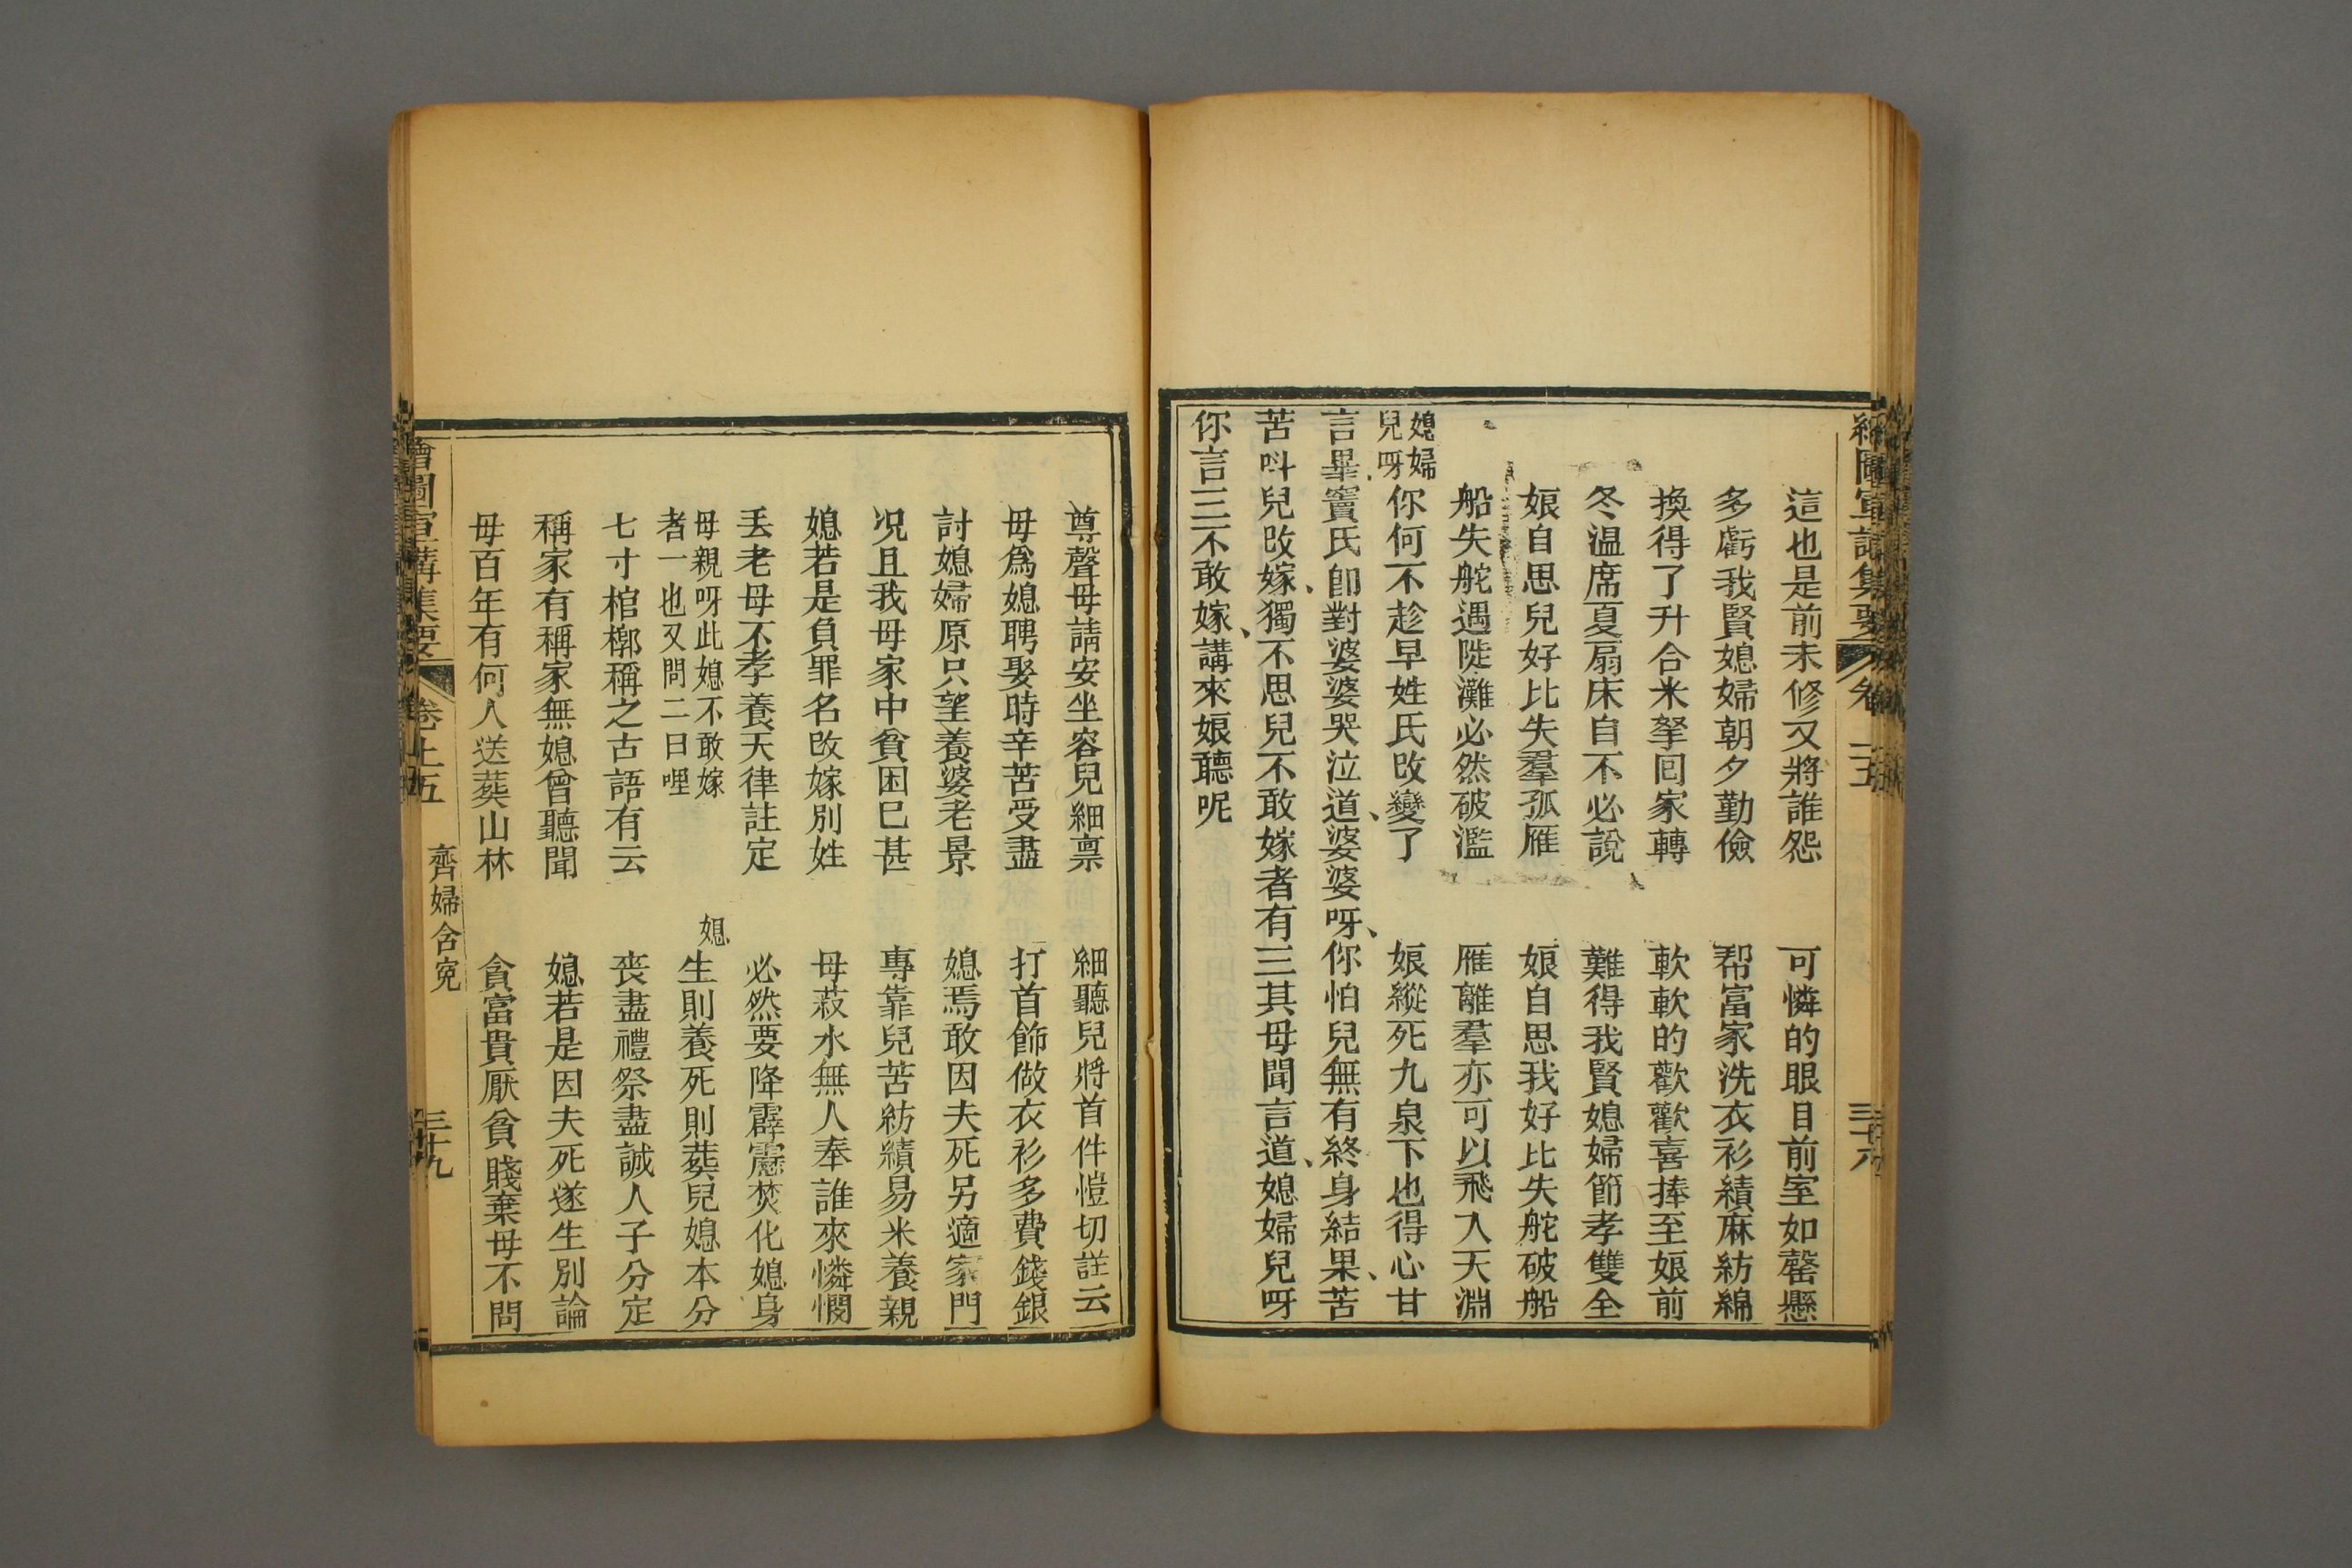 這也是前未修又將誰怨　可憐的眼目前室如罄懸
多虧我賢媳婦朝夕勤儉　帮富家洗衣衫績麻紡綿
換得了升合米拏囘家轉　軟軟的歡歡喜捧至娘前
冬温席夏扇床自不必說　難得我賢媳婦節孝雙全
娘自思兒好比失羣孤雁　娘自思我好比失舵破船
船失舵遇陡灘必然破濫　雁離羣亦可以飛入天淵
媳婦兒呀你何不趁早姓氏改變了　娘縱死九泉下也得心甘
言畢竇氏卽對婆婆哭泣道、婆婆呀、你怕兒無有終身結果、苦
苦呌兒改嫁、獨不思兒不敢嫁者有三其母聞言道、媳婦兒呀
你言三不敢嫁、講來娘聽呢
尊聲母請安坐容兒細禀　細聽兒將首件愷切註云
母爲媳聘娶時辛苦受盡　打首飾做衣衫多費錢銀
討媳婦原只望養婆老景　媳焉敢因夫死另適家門
况且我母家中貧困巳甚　專靠兒苦紡績易米養親
媳若是負罪名改嫁別姓　母菽水無人奉誰來憐憫
丟老母不孝養天律註定　必然要降霹靂焚化媳身
母親呀此媳不敢嫁者一也又問二曰哩　媳生則養死則葬兒媳本分
七寸棺槨稱之古語有云　喪盡禮祭盡誠人子分定
稱家有稱家無媳曾聽聞　媳若是因夫死遂生別論
母百年有何人送葬山林　貪富貴厭貧賤棄母不問
繪圖宣講集要　卷上五　齊婦含寃　三十九